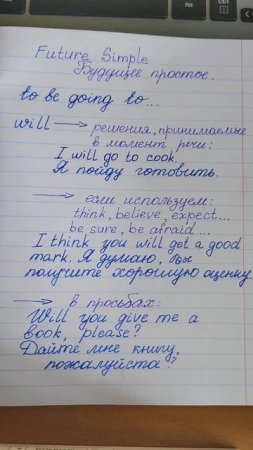 Future Simple
Будущее простое.
to be going to...
will → решения, принимаемые
в момент речи:
I will go to cook.
Я пойду готовить.
→ если используем:
think, believe, expect...
be sure, be afraid...
I think you will get a good
mark. Я думаю, вы
получите хорошую оценку.
→ в просьбах:
Will you give me a
book, please?
Дайте мне книгу,
пожалуйста?